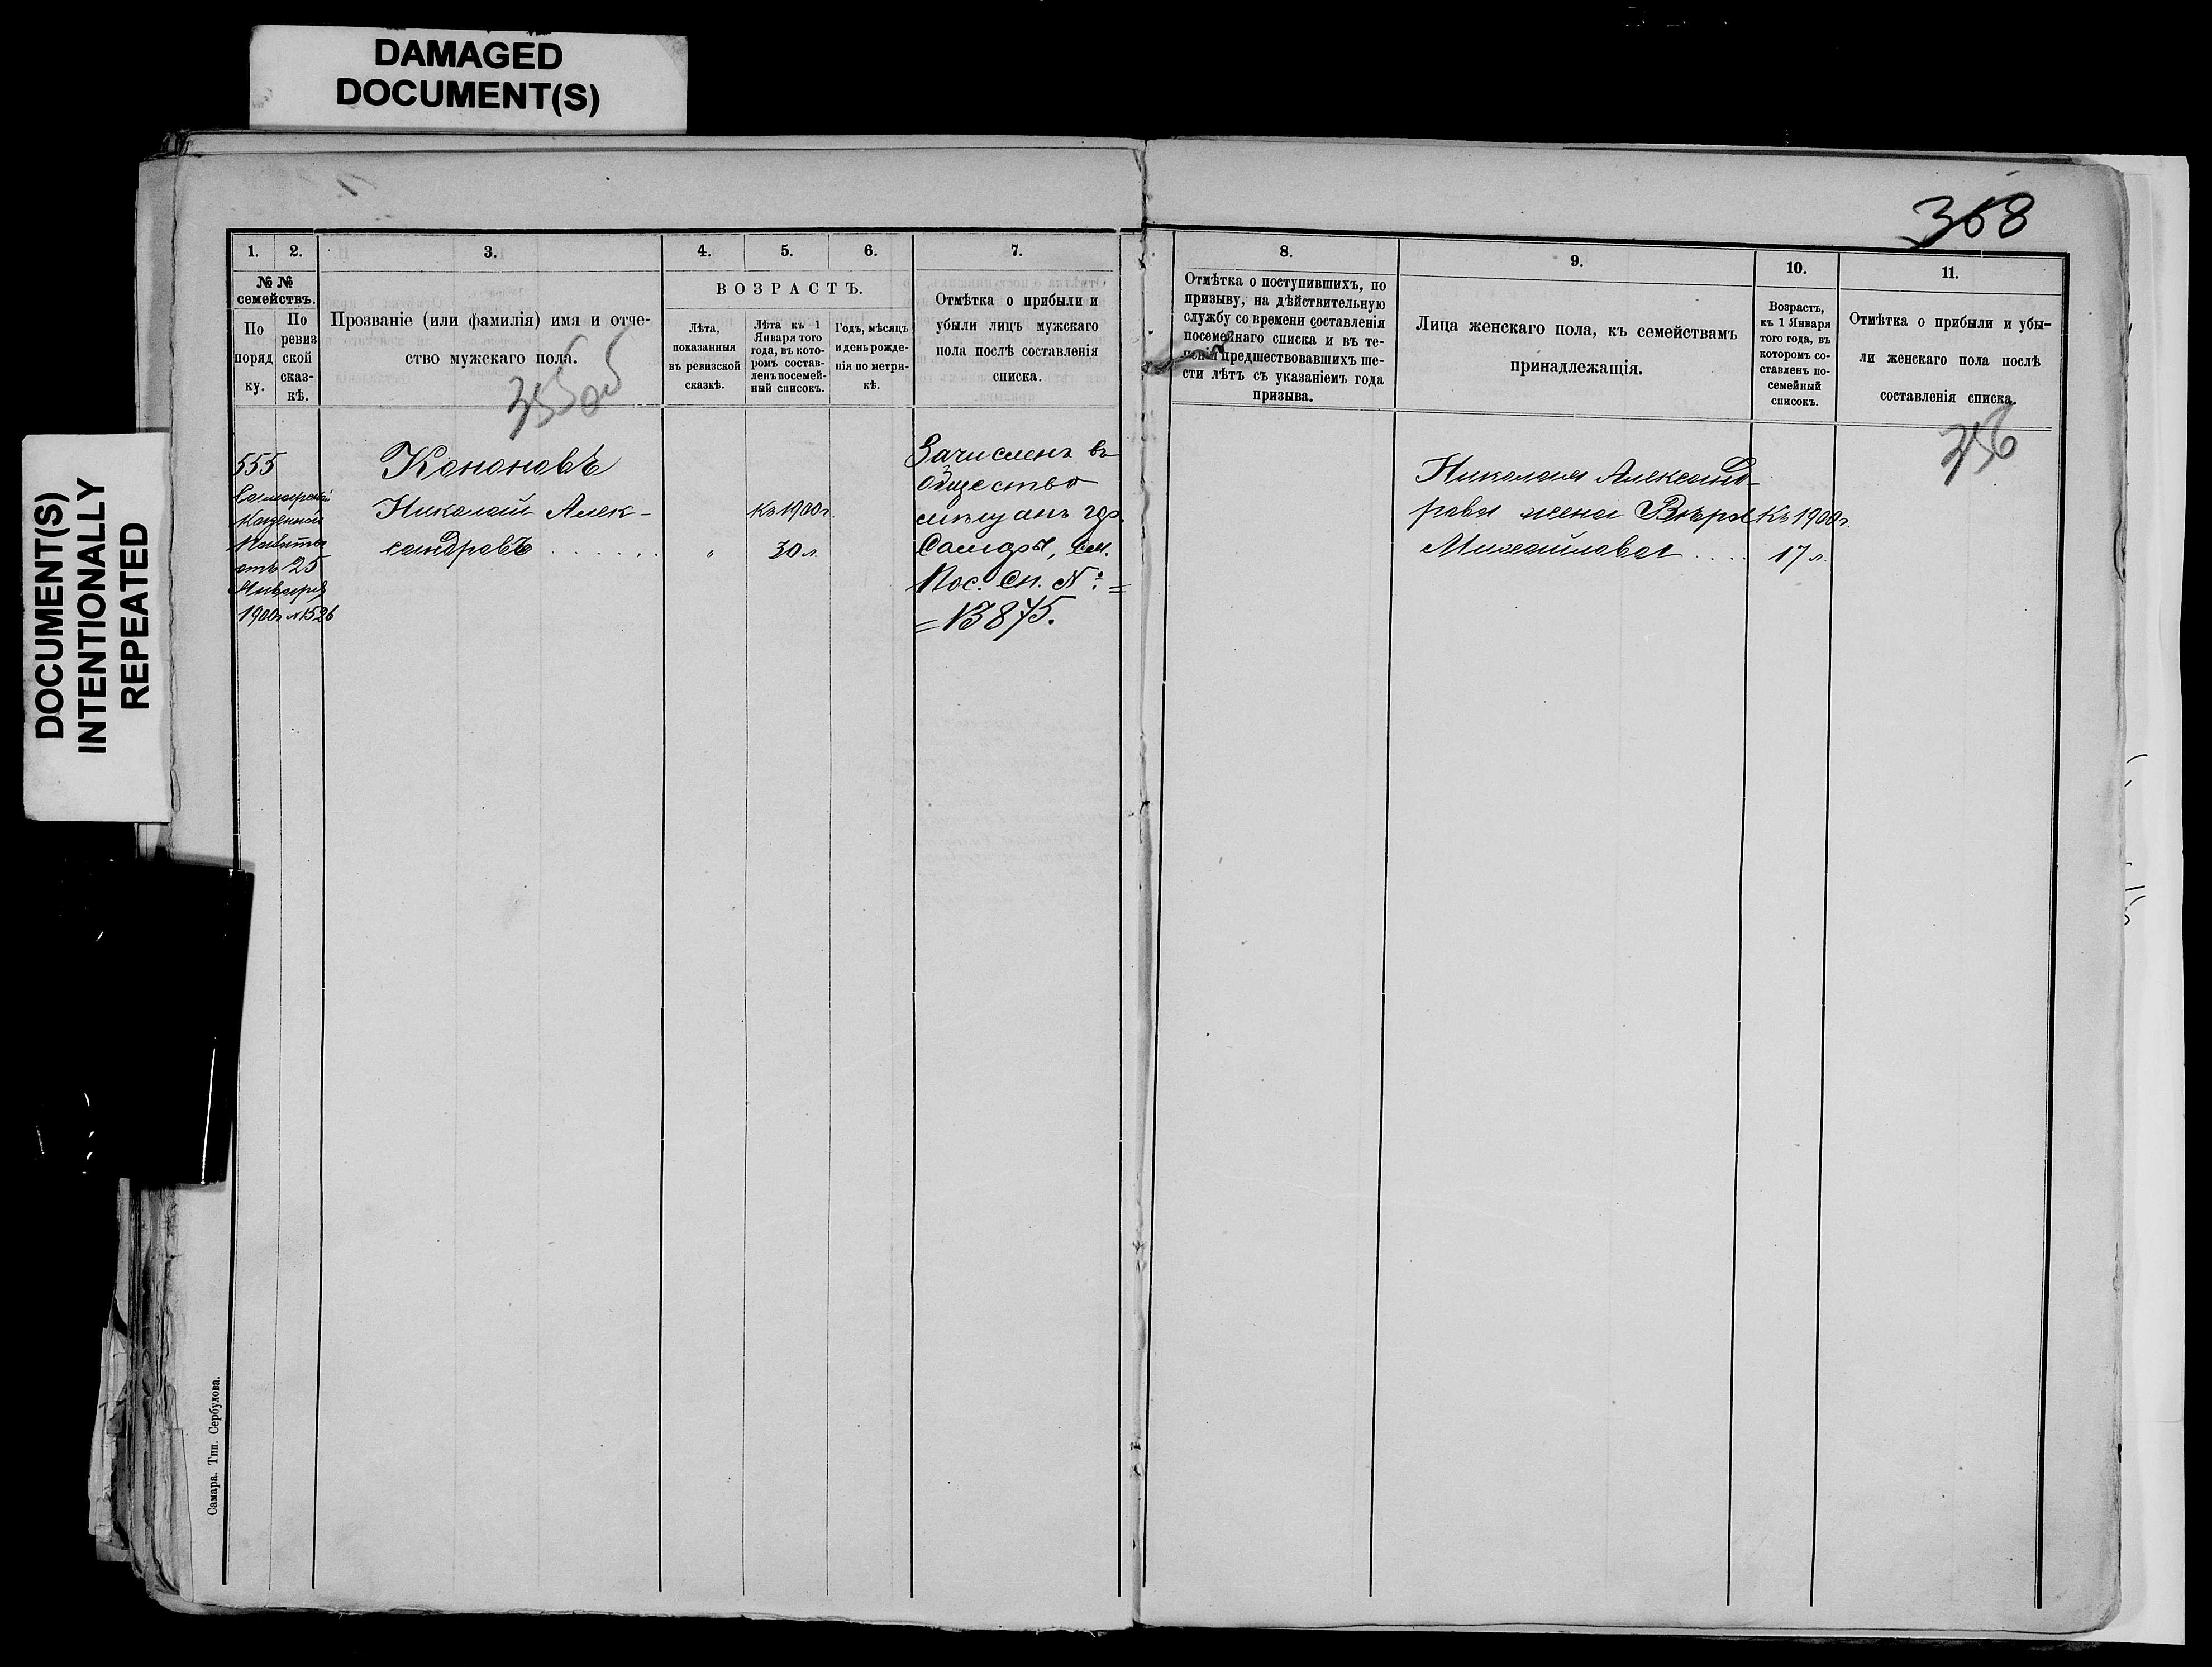 DAMAGED
DOCUMENT(S)
DOCUMENT(S)
INTENTIONALLY
REPEATED
368
1.
2.
3.
4.
5.
6.
7.
№ №
семействъ.
По
поряд
ку.
По
ревиз
ской
сказ-
кѣ.
Прозваніе (или фамилія) имя и отче-
ство мужскаго пола.
ВОЗРАСТЪ.
Лѣта,
показанныя
въ ревизской
сказкѣ.
Лѣта къ 1
Января того
года, въ кото-
ромъ состав-
ленъ посемей-
ный списокъ.
Годъ, мѣсяцъ
и день рожде-
нія по метри-
кѣ.
Отмѣтка о прибыли и
убыли лицъ мужскаго
пола послѣ составленія
списка.
555
Самарской
Казенной
Палаты
отъ 25
Января
1900 г № 1526
Кононовъ
Николай Алек-
сандровъ . . . . . .
"
Къ 1900 г.
30 л.
Зачисленъ въ
общество
мѣщанъ гор.
Самары, см.
Пос. Сп. № =
= 13875.
8.
9.
10.
11.
Отмѣтка о поступившихъ, по
призыву, на дѣйствительную
службу со времени составленія
посемейнаго списка и въ те-
ченіи предшествовавшихъ ше-
сти лѣтъ съ указаніемъ года
призыва.
Лица женскаго пола, къ семействамъ
принадлежащія.
Возрастъ,
къ 1 Января
того года, въ
которомъ со-
ставленъ по-
семейный
списокъ.
Отмѣтка о прибыли и убы-
ли женскаго пола послѣ
составленія списка.
356
Николая Александ-
рова жена Вѣра
Михайлова . . . .
Къ 1900 г.
17 л.
Самара. Тип. Сербулова.